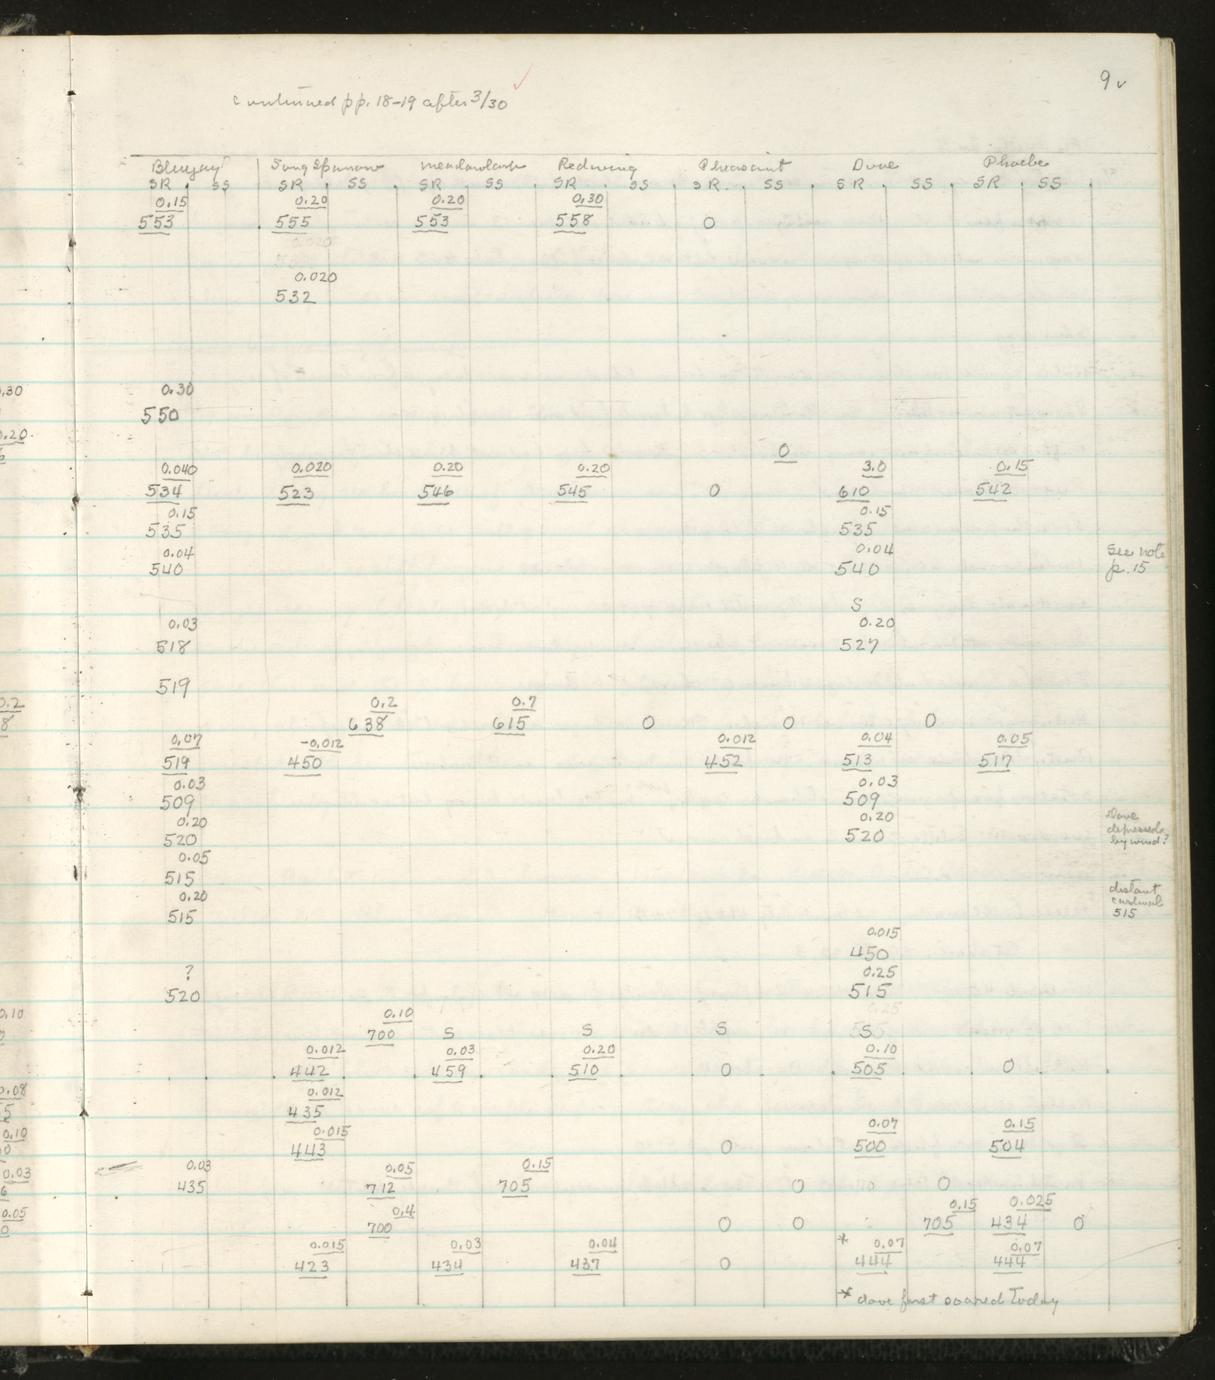 9v
continued pp. 18-19 after 3/30
Bluejay Song Sparrow meadowlark Redwing Pheasant Dove Phoebe
SR SS SR SS SR SS SR SS SR. SS SR SS SR SS
0.15 0.20 0.20 0.30
553 555 553 558 0
0.020
532
0.30 0.30
550
0.20 0
0.040 0.020 0.20 0.20 3.0 0.15
534 523 546 545 0 610 542
0.15 0.15
535 535
0.04 0.04 See note
540 540 p. 15
S
0.03 0.20
518 527
519
0.2 0.2 0.7
8 638 615 0 0 0
0.07 -0.012 0.012 0.04 0.05
519 450 452 513 517
0.03 0.03
509 509
0.20 0.20 Dove
520 520 depressed
by wind?
0.05
515
0.20 distant
cardinal
515 515
0.015
450
? 0.25
520 515
0.10 0.10
0 700 S S S S
0.012 0.03 0.20 0.10
442 459 510 0 505 0
0.08 0.012
5 435
0.10 0.015 0.07 0.15
0 443 0 500 504
0.03 0.03 0.05 0.15
6 435 712 705 0 0
0.05 0.4 0.15 0.025
0 700 0 0 705 434 0
0.015 0.03 0.04 * 0.07 0.07
423 434 437 0 444 444
* dove first soared Today